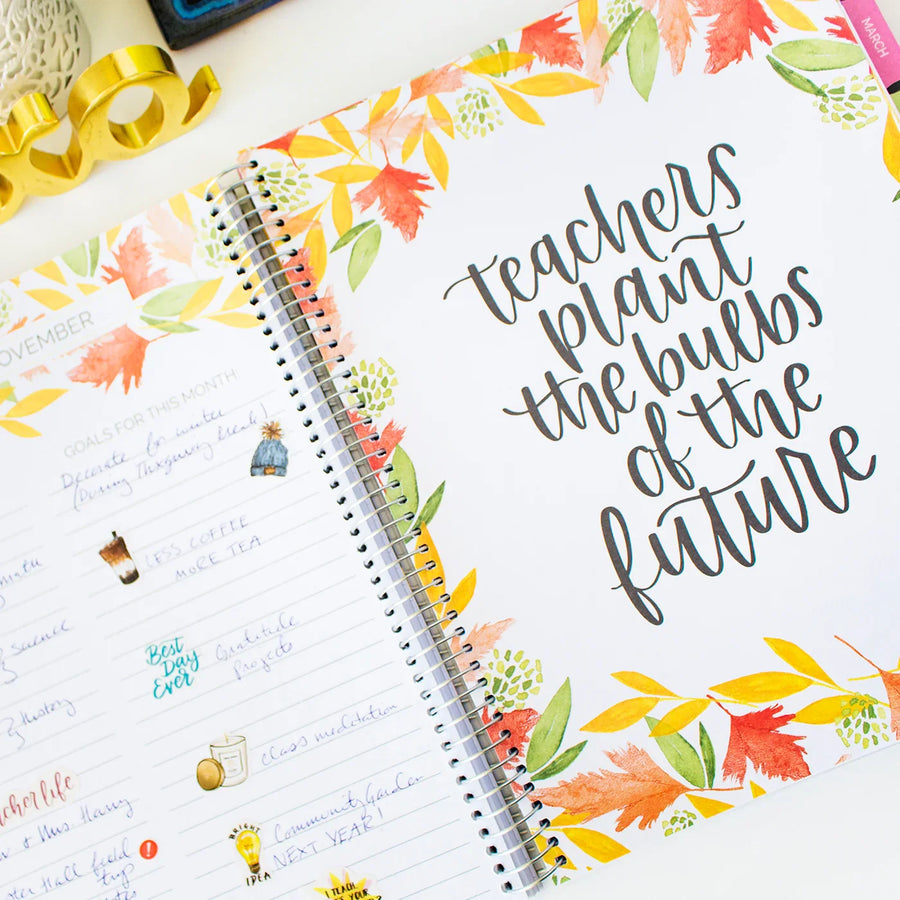 MARCH
NOVEMBER
GOALS FOR THIS MONTH
Decorate for winter
(During Thxgiving break!)
LESS COFFEE
MORE TEA
Science
Best
Day
Ever
Gratitude
projects
& History
class meditation
& Mrs. Harry
Hall field
trip
BRIGHT
IDEA
Community Garden
NEXT YEAR!
I TEACH.
teachers
plant
the bulbs
of the
future